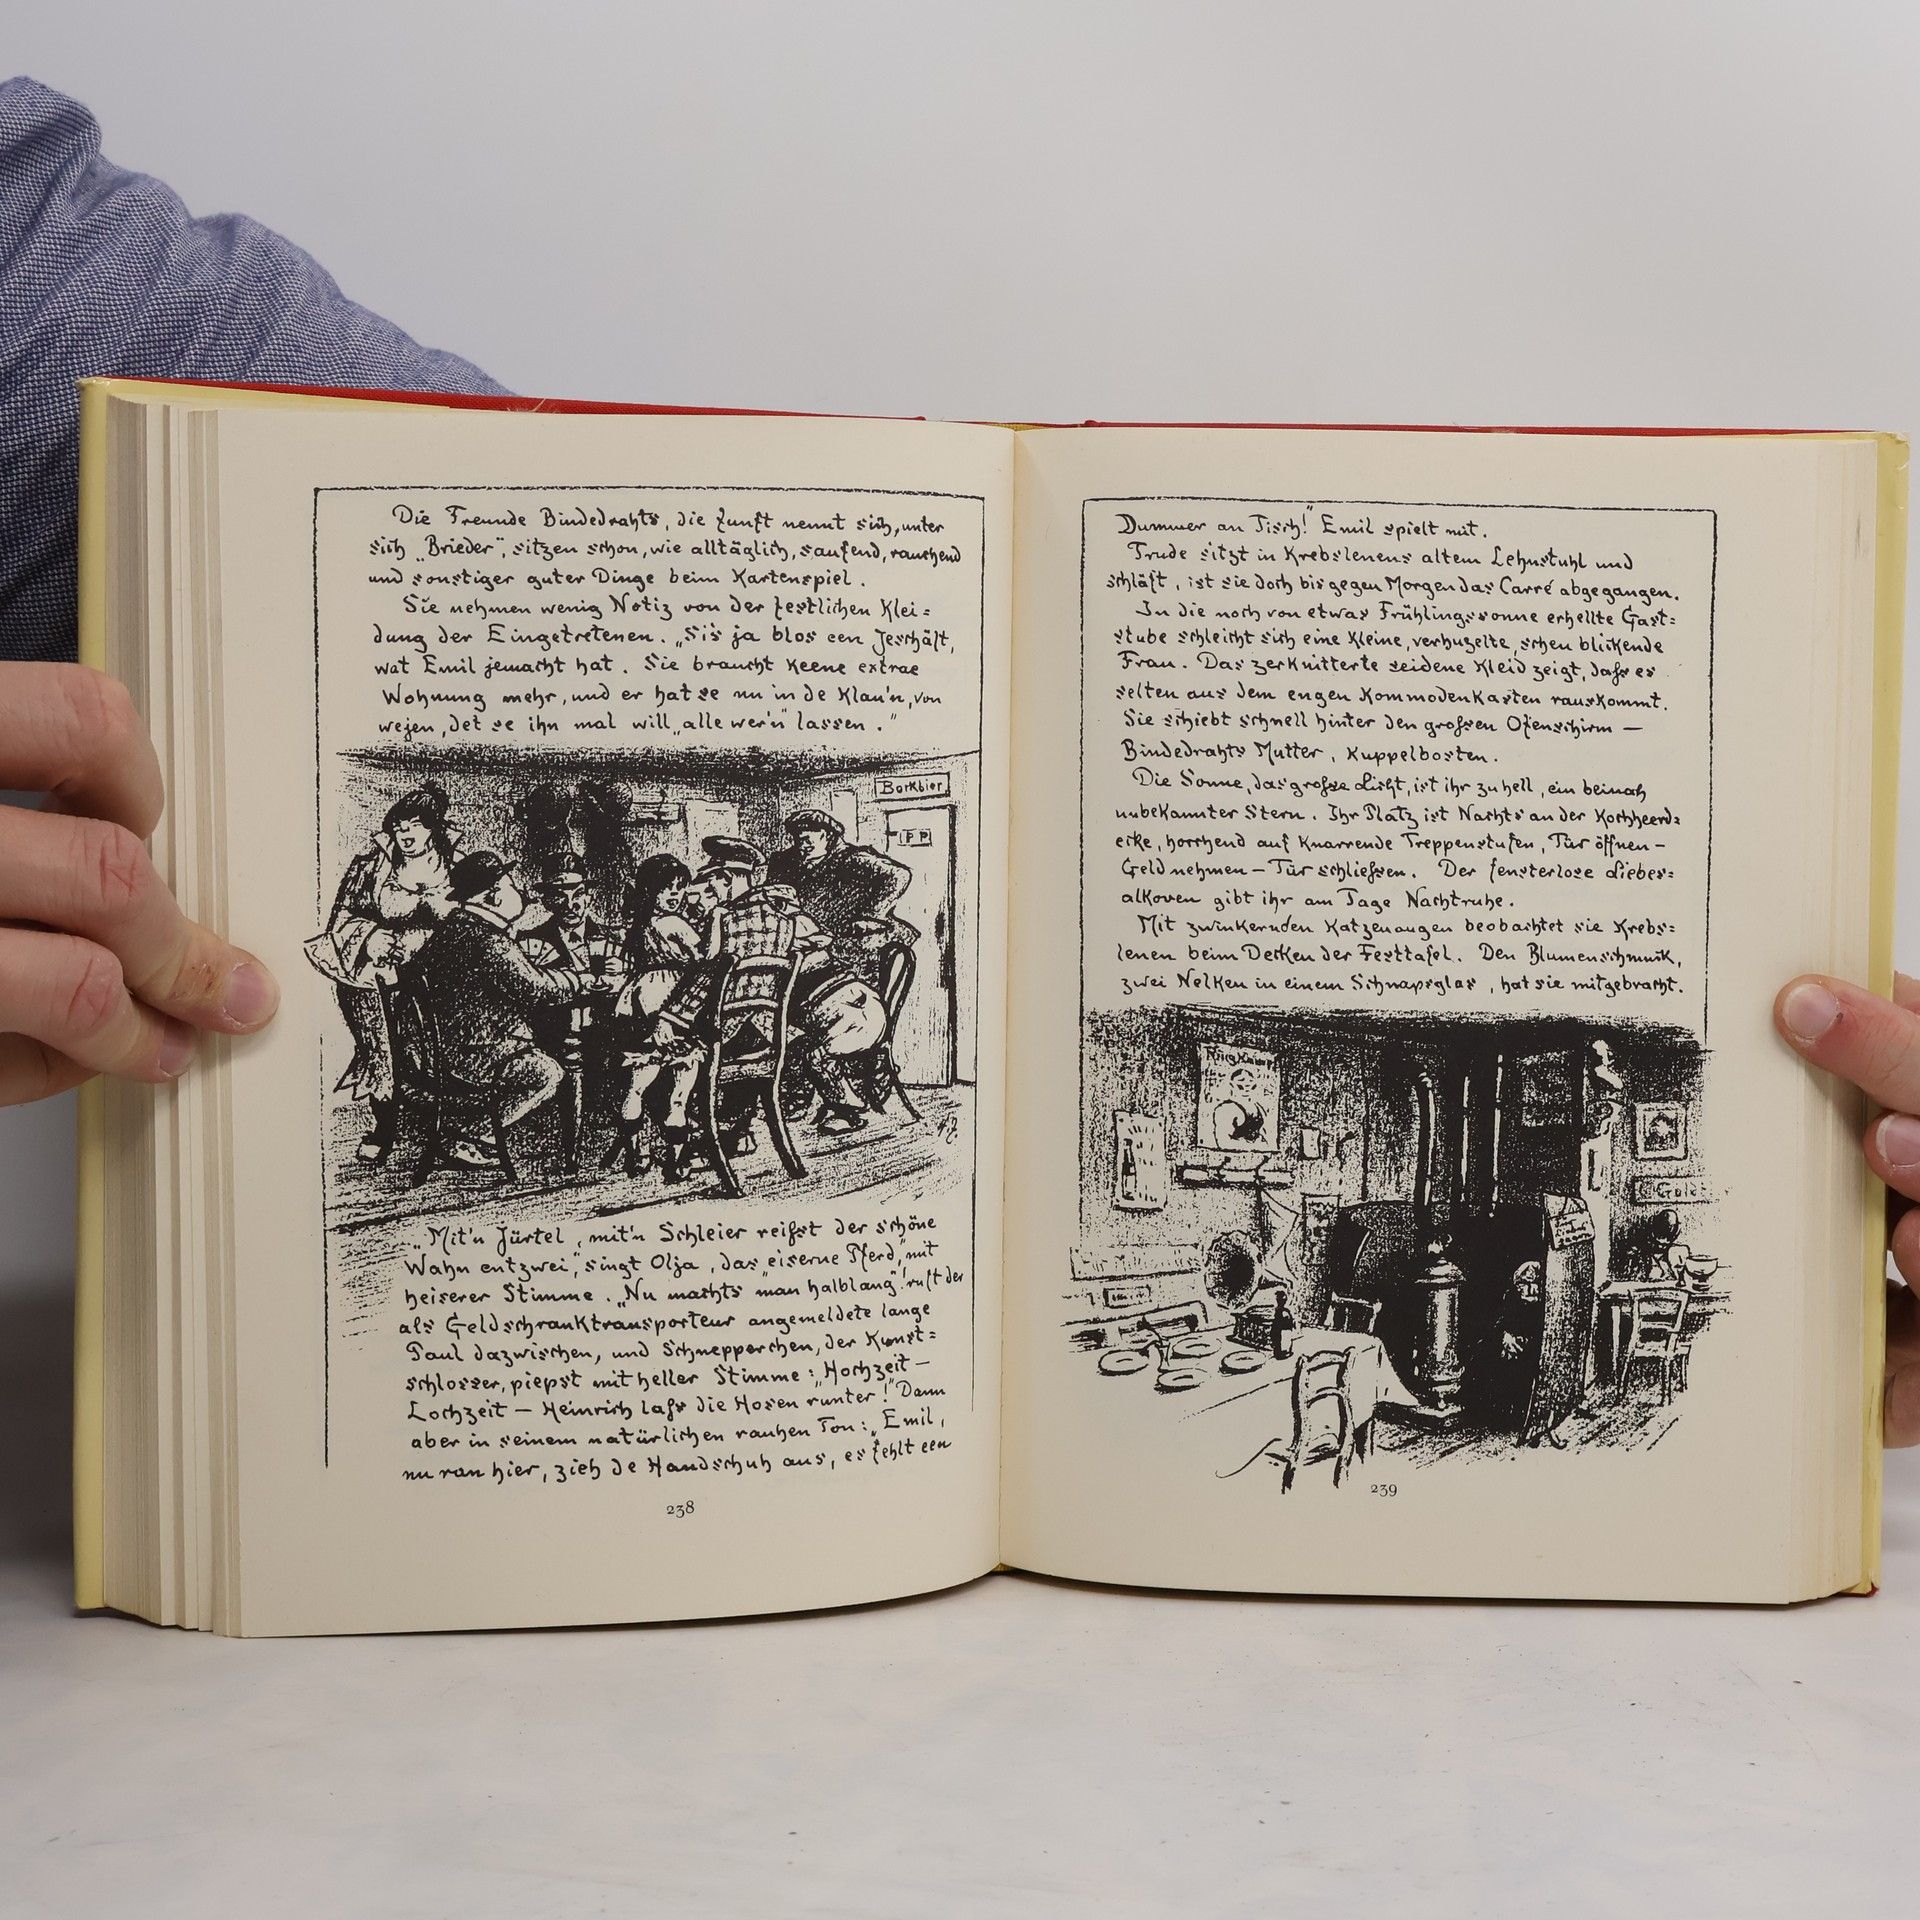 Die Freunde Bindedrahts, die Zunft nennt sich, unter
sich „Brieder“, sitzen schon, wie alltäglich, saufend, rauchend
und sonstiger guter Dinge beim Kartenspiel.
Sie nehmen wenig Notiz von der festlichen Klei=
dung der Eingetretenen. „Sis ja blos een Jeschäft,
wat Emil jemacht hat. Sie braucht keene extrae
Wohnung mehr, und er hat se nu in de Klau'n, von
wejen, det se ihn mal will „alle wer'n“ lassen.“
Borkbier
„Mit'n Jürtel, mit'n Schleier reifst der schöne
Wahn entzwei,“ singt Olja, das „eiserne Pferd,“ mit
heiserer Stimme. „Nu machts man halblang“! ruft der
als Geldschranktransporteur angemeldete lange
Paul dazwischen, und Schnepperchen, der Kunst=
schlosser, piepst mit heller Stimme: „Hochzeit —
Lochzeit — Heinrich lafs die Hosen runter!“ Dann
aber in seinem natürlichen rauhen Ton: „Emil,
nu ran hier, zieh de Handschuh aus, es fehlt een
238
Dummer an Tisch!“ Emil spielt mit.
Trude sitzt in Krebslenens altem Lehnstuhl und
schläft, ist sie doch bis gegen Morgen das Carré abgegangen.
In die noch von etwas Frühlingssonne erhellte Gast=
stube schleicht sich eine kleine, verhuzelte, scheu blickende
Frau. Das zerknitterte seidene Kleid zeigt, dafs es
selten aus dem engen Kommodenkasten rauskommt.
Sie schiebt schnell hinter den grofsen Ofenschirm —
Bindedrahts Mutter, Kuppelbosten.
Die Sonne, das grofse Licht, ist ihr zu hell, ein beinah
unbekannter Stern. Ihr Platz ist Nachts an der Kochheerd=
ecke, horchend auf knarrende Treppenstufen, Tür öffnen —
Geld nehmen — Tür schliefsen. Der fensterlose Liebes=
alkoven gibt ihr am Tage Nachtruhe.
Mit zwinkernden Katzenaugen beobachtet sie Krebs=
lenen beim Decken der Festtafel. Den Blumenschmuck,
zwei Nelken in einem Schnapsglas, hat sie mitgebracht.
239